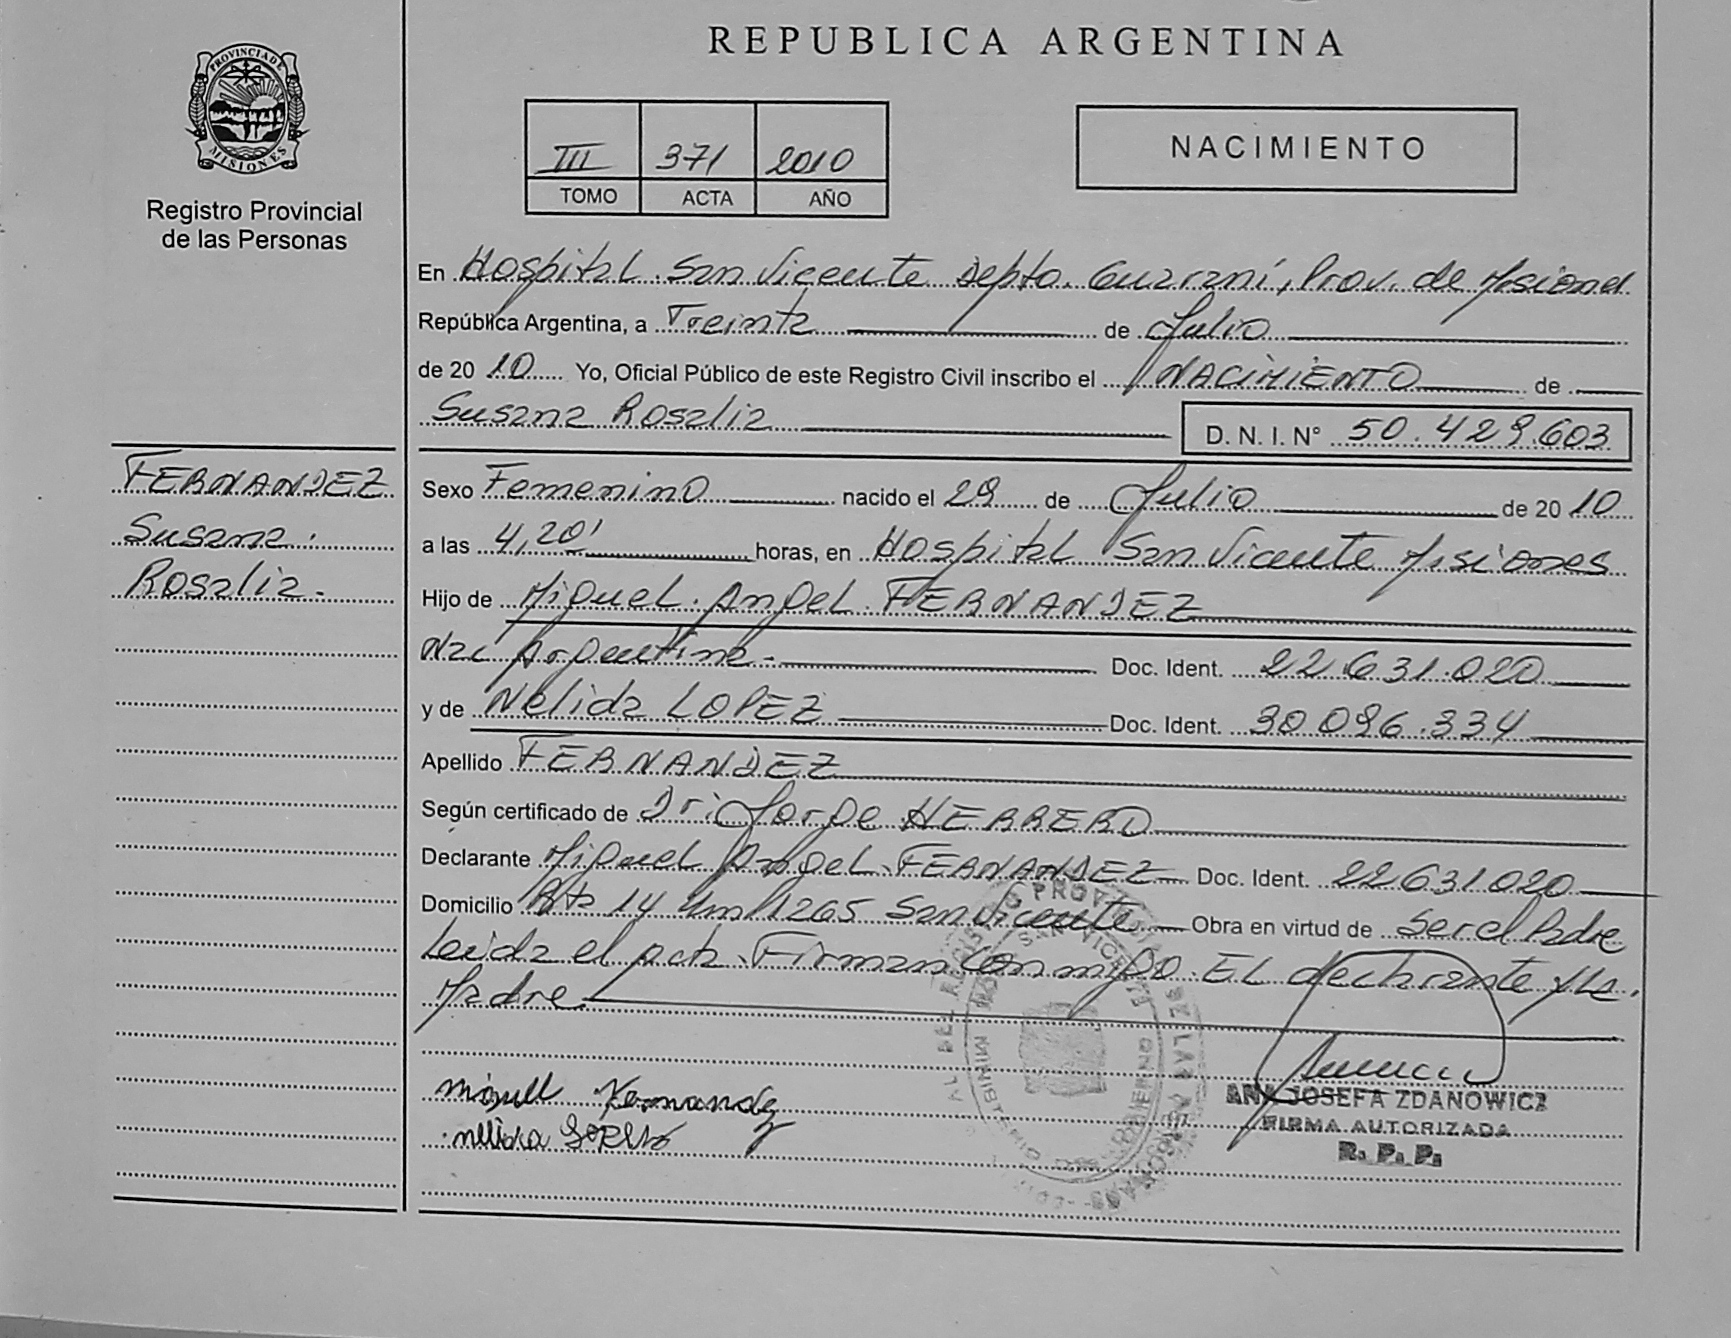 REPUBLICA ARGENTINA
PROVINCIA DE MISIONES
Registro Provincial
de las Personas
III 371 2010
TOMO ACTA AÑO
NACIMIENTO
En Hospital San Vicente Depto. Guaraní, Prov. de Misiones
República Argentina, a Treinta de Julio
de 2010 Yo, Oficial Público de este Registro Civil inscribo el NACIMIENTO de
Susana Rosalia D. N. I. N° 50.429.603
FERNANDEZ
Susana
Rosalia.
Sexo Femenino nacido el 29 de Julio de 2010
a las 4,20' horas, en Hospital San Vicente Misiones
Hijo de Miguel Angel FERNANDEZ
Nac Argentina - Doc. Ident. 22.631.020
y de Nélida LOPEZ Doc. Ident. 30.096.334
Apellido FERNANDEZ
Según certificado de Dr: Jorge HERRERO
Declarante Miguel Angel FERNANDEZ Doc. Ident. 22631020
Domicilio Rta 14 Km 1265 San Vicente Obra en virtud de Ser el Padre
Leída el acta. Firman conmigo. EL declarante y la
Madre
Miguel Fernandez
ANA JOSEFA ZDANOWICZ
FIRMA AUTORIZADA
R. P. P.